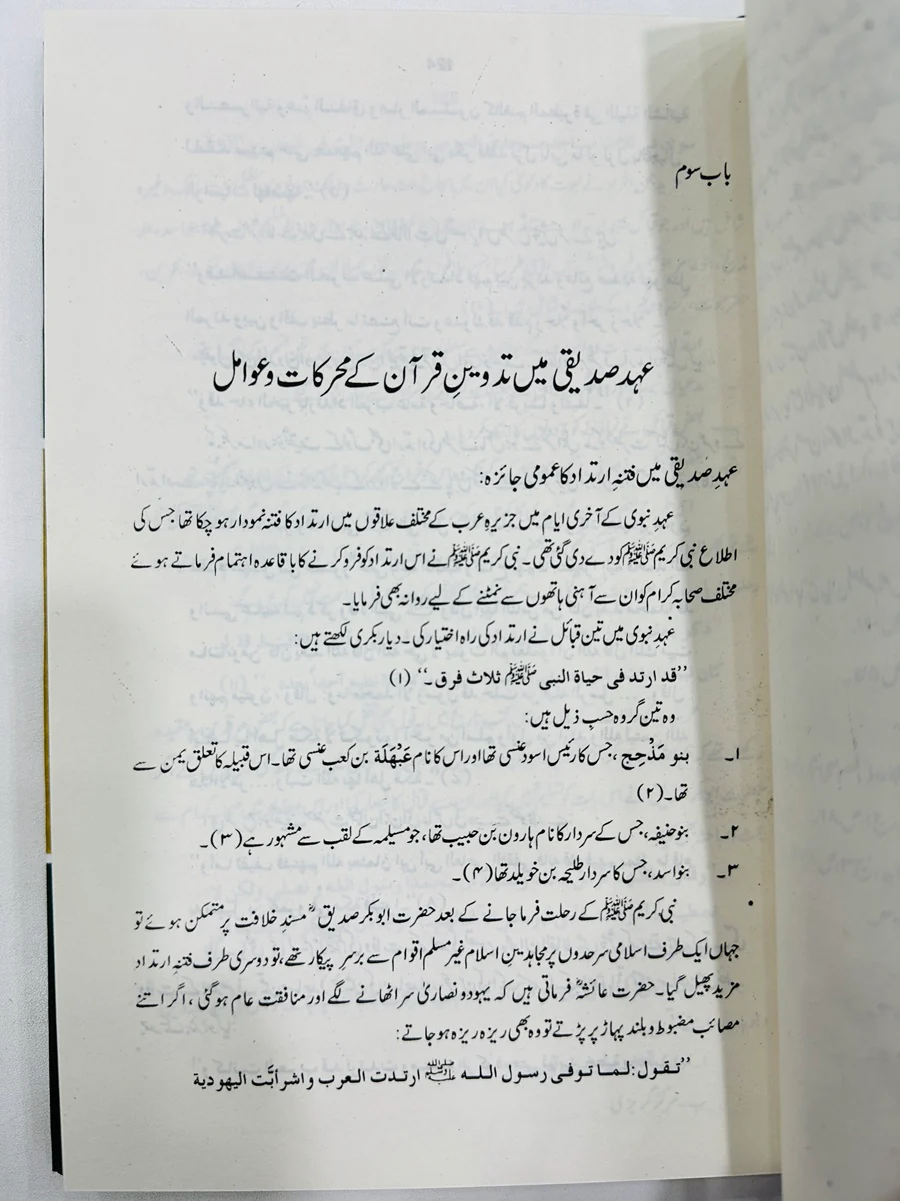 باب سوم
عہد صدیقی میں تدوینِ قرآن کے محرکات و عوامل
عہدِ صدیقی میں فتنہِ ارتداد کا عمومی جائزہ:
عہدِ نبوی کے آخری ایام میں جزیرہِ عرب کے مختلف علاقوں میں ارتداد کا فتنہ نمودار ہو چکا تھا جس کی
اطلاع نبی کریم ﷺ کو دے دی گئی تھی۔ نبی کریم ﷺ نے اس ارتداد کو فرو کرنے کا باقاعدہ اہتمام فرماتے ہوئے
مختلف صحابہ کرام کو ان سے آہنی ہاتھوں سے نمٹنے کے لیے روانہ بھی فرمایا۔
عہدِ نبوی میں تین قبائل نے ارتداد کی راہ اختیار کی۔ دیار بکری لکھتے ہیں:
”قد ارتد فی حیاة النبی ﷺ ثلاث فرق۔“ (۱)
وہ تین گروہ حسبِ ذیل ہیں:
۱۔ بنو مَذْحِج، جس کا رئیس اسود عنسی تھا اور اس کا نام عَبْهَلَة بن کعب عنسی تھا۔ اس قبیلہ کا تعلق یمن سے
تھا۔ (۲)
۲۔ بنو حنیفہ، جس کے سردار کا نام ہارون بن حبیب تھا، جو مسیلمہ کے لقب سے مشہور ہے (۳)۔
۳۔ بنو اسد، جس کا سردار طلیحہ بن خویلد تھا (۴)۔
نبی کریم ﷺ کے رحلت فرما جانے کے بعد حضرت ابوبکر صدیقؓ مسندِ خلافت پر متمکن ہوئے تو
جہاں ایک طرف اسلامی سرحدوں پر مجاہدینِ اسلام غیر مسلم اقوام سے برسرِ پیکار تھے، تو دوسری طرف فتنہِ ارتداد
مزید پھیل گیا۔ حضرت عائشہؓ فرماتی ہیں کہ یہود و نصاریٰ سر اٹھانے لگے اور منافقت عام ہوگئی، اگر اتنے
مصائب مضبوط و بلند پہاڑ پر پڑتے تو وہ بھی ریزہ ریزہ ہو جاتے:
”تقول: لما توفی رسول اللہ ﷺ ارتدت العرب و اشرأبَّت الیھودیة